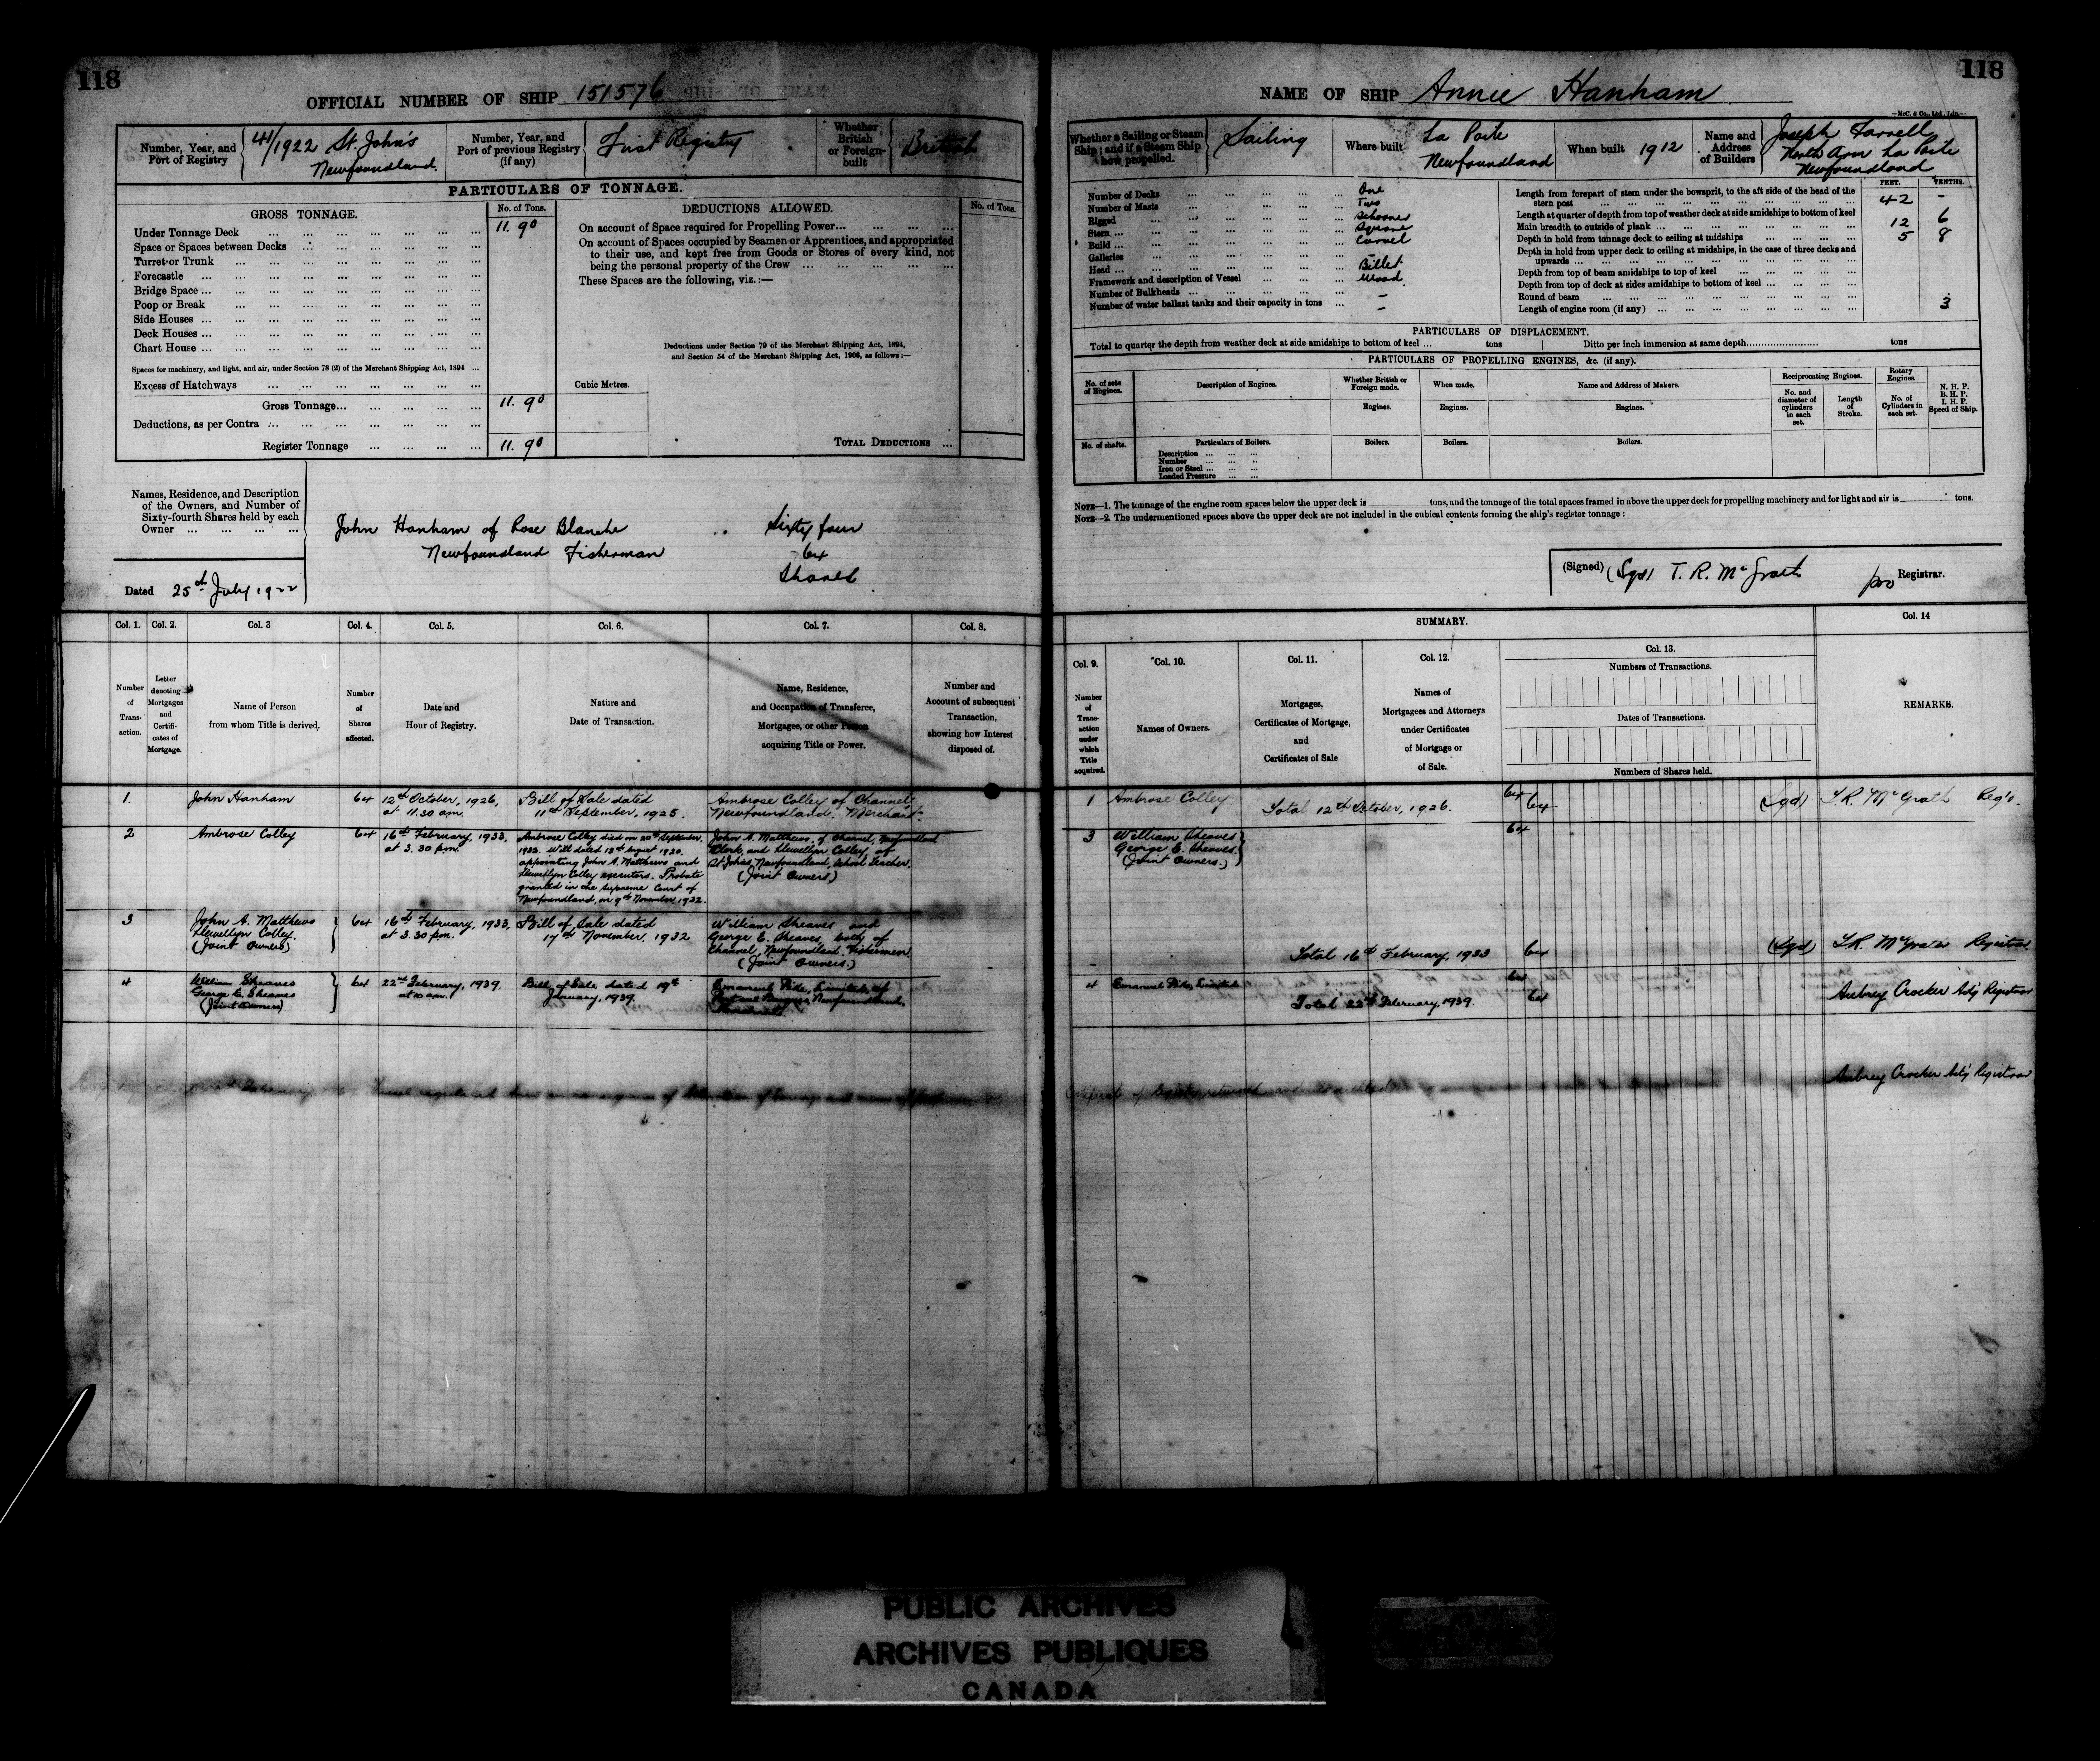 118
OFFICIAL NUMBER OF SHIP 151576
Number, Year, and Port of Registry
41/1922 St. John's
Newfoundland.
Number, Year, and Port of previous Registry (if any)
First Registry
Whether British or Foreign-built
British
PARTICULARS OF TONNAGE.
GROSS TONNAGE.
No. of Tons.
DEDUCTIONS ALLOWED.
No. of Tons.
Under Tonnage Deck 11.90
Space or Spaces between Decks
Turret or Trunk
Forecastle
Bridge Space
Poop or Break
Side Houses
Deck Houses
Chart House
Spaces for machinery, and light, and air, under Section 78 (2) of the Merchant Shipping Act, 1894
Excess of Hatchways
Gross Tonnage 11.90
Deductions, as per Contra
Register Tonnage 11.90
On account of Space required for Propelling Power
On account of Spaces occupied by Seamen or Apprentices, and appropriated
to their use, and kept free from Goods or Stores of every kind, not
being the personal property of the Crew
These Spaces are the following, viz.:—
Deductions under Section 79 of the Merchant Shipping Act, 1894,
and Section 54 of the Merchant Shipping Act, 1906, as follows:—
Cubic Metres.
TOTAL DEDUCTIONS
Names, Residence, and Description
of the Owners, and Number of
Sixty-fourth Shares held by each
Owner
John Hanham of Rose Blanche .. Sixty four
Newfoundland Fisherman 64
Shares
Dated 25th July 1922
Col. 1. Col. 2. Col. 3 Col. 4. Col. 5. Col. 6. Col. 7. Col. 8.
Number of Transaction.
Letter denoting Mortgages and Certificates of Mortgage.
Name of Person from whom Title is derived.
Number of Shares affected.
Date and Hour of Registry.
Nature and Date of Transaction.
Name, Residence, and Occupation of Transferee, Mortgagee, or other Person acquiring Title or Power.
Number and Account of subsequent Transaction, showing how Interest disposed of.
1. John Hanham 64 12th October, 1926, at 11.30 am. Bill of Sale dated 11th September, 1925. Ambrose Colley of Channel, Newfoundland. Merchant.
2 Ambrose Colley 64 16th February, 1933, at 3.30 p.m.
Ambrose Colley died on 20th September, 1932. Will dated 13th August 1930.
appointing John A. Matthews and
Llewellyn Colley executors. Probate
granted in the Supreme Court of
Newfoundland, on 9th November 1932.
John A. Matthews, of Channel, Newfoundland
Clerk, and Llewellyn Colley of
St John's, Newfoundland, School Teacher.
(Joint Owners)
3 John A. Matthews Llewellyn Colley. (Joint Owners) 64 16th February, 1933, at 3.30 pm.
Bill of Sale dated
17th November, 1932
William Sheaves and
George E. Sheaves, both of
Channel, Newfoundland. Fishermen
(Joint Owners.)
4 William Sheaves George E. Sheaves (Joint Owners) 64 22nd February, 1939. at 10 am.
Bill of Sale dated 19th
January, 1939.
Emanuel Pike, Limited, of
Port aux Basques, Newfoundland,
118
NAME OF SHIP Annie Hanham
Whether a Sailing or Steam Ship; and if a Steam Ship how propelled.
Sailing
Where built
La Poile
Newfoundland
When built 1912
Name and Address of Builders
Joseph Farrell
North Arm La Poile
Newfoundland
Number of Decks One
Number of Masts Two
Rigged Schooner
Stern Square
Build Carvel
Galleries —
Head Billet
Framework and description of Vessel Wood.
Number of Bulkheads —
Number of water ballast tanks and their capacity in tons —
FEET. TENTHS.
Length from forepart of stem under the bowsprit, to the aft side of the head of the
stern post 42 -
Length at quarter of depth from top of weather deck at side amidships to bottom of keel
Main breadth to outside of plank 12 6
Depth in hold from tonnage deck to ceiling at midships 5 8
Depth in hold from upper deck to ceiling at midships, in the case of three decks and
upwards
Depth from top of beam amidships to top of keel
Depth from top of deck at sides amidships to bottom of keel
Round of beam 3
Length of engine room (if any)
PARTICULARS OF DISPLACEMENT.
Total to quarter the depth from weather deck at side amidships to bottom of keel tons Ditto per inch immersion at same depth tons
PARTICULARS OF PROPELLING ENGINES, &c. (if any).
No. of sets of Engines.
Description of Engines.
Whether British or Foreign made.
When made.
Name and Address of Makers.
Reciprocating Engines.
Rotary Engines.
N. H. P.
B. H. P.
I. H. P.
Speed of Ship.
No. and diameter of cylinders in each set.
Length of Stroke.
No. of Cylinders in each set.
Engines. Engines. Engines.
No. of shafts.
Particulars of Boilers.
Boilers. Boilers. Boilers.
Description
Number
Iron or Steel
Loaded Pressure
NOTE—1. The tonnage of the engine room spaces below the upper deck is tons, and the tonnage of the total spaces framed in above the upper deck for propelling machinery and for light and air is tons.
NOTE—2. The undermentioned spaces above the upper deck are not included in the cubical contents forming the ship's register tonnage:
(Signed) (Sgd) T. R. McGrath pro Registrar.
SUMMARY.
Col. 14
Col. 9. Col. 10. Col. 11. Col. 12. Col. 13.
Number of Transaction under which Title acquired.
Names of Owners.
Mortgages, Certificates of Mortgage, and Certificates of Sale
Names of Mortgagees and Attorneys under Certificates of Mortgage or of Sale.
Numbers of Transactions.
Dates of Transactions.
Numbers of Shares held.
REMARKS.
1 Ambrose Colley 64
Total 12th October, 1926. 64 (Sgd) T.R. McGrath Reg'r.
3 William Sheaves George E. Sheaves. (Joint Owners.) 64
Total 16th February, 1933 64 (Sgd) T.R. McGrath Registrar
4 Emanuel Pike, Limited 64
Total 22nd February, 1939. 64 Aubrey Crocker Act'g Registrar
Certificate of Registry returned and cancelled
Aubrey Crocker Act'g Registrar
PUBLIC ARCHIVES
ARCHIVES PUBLIQUES
CANADA